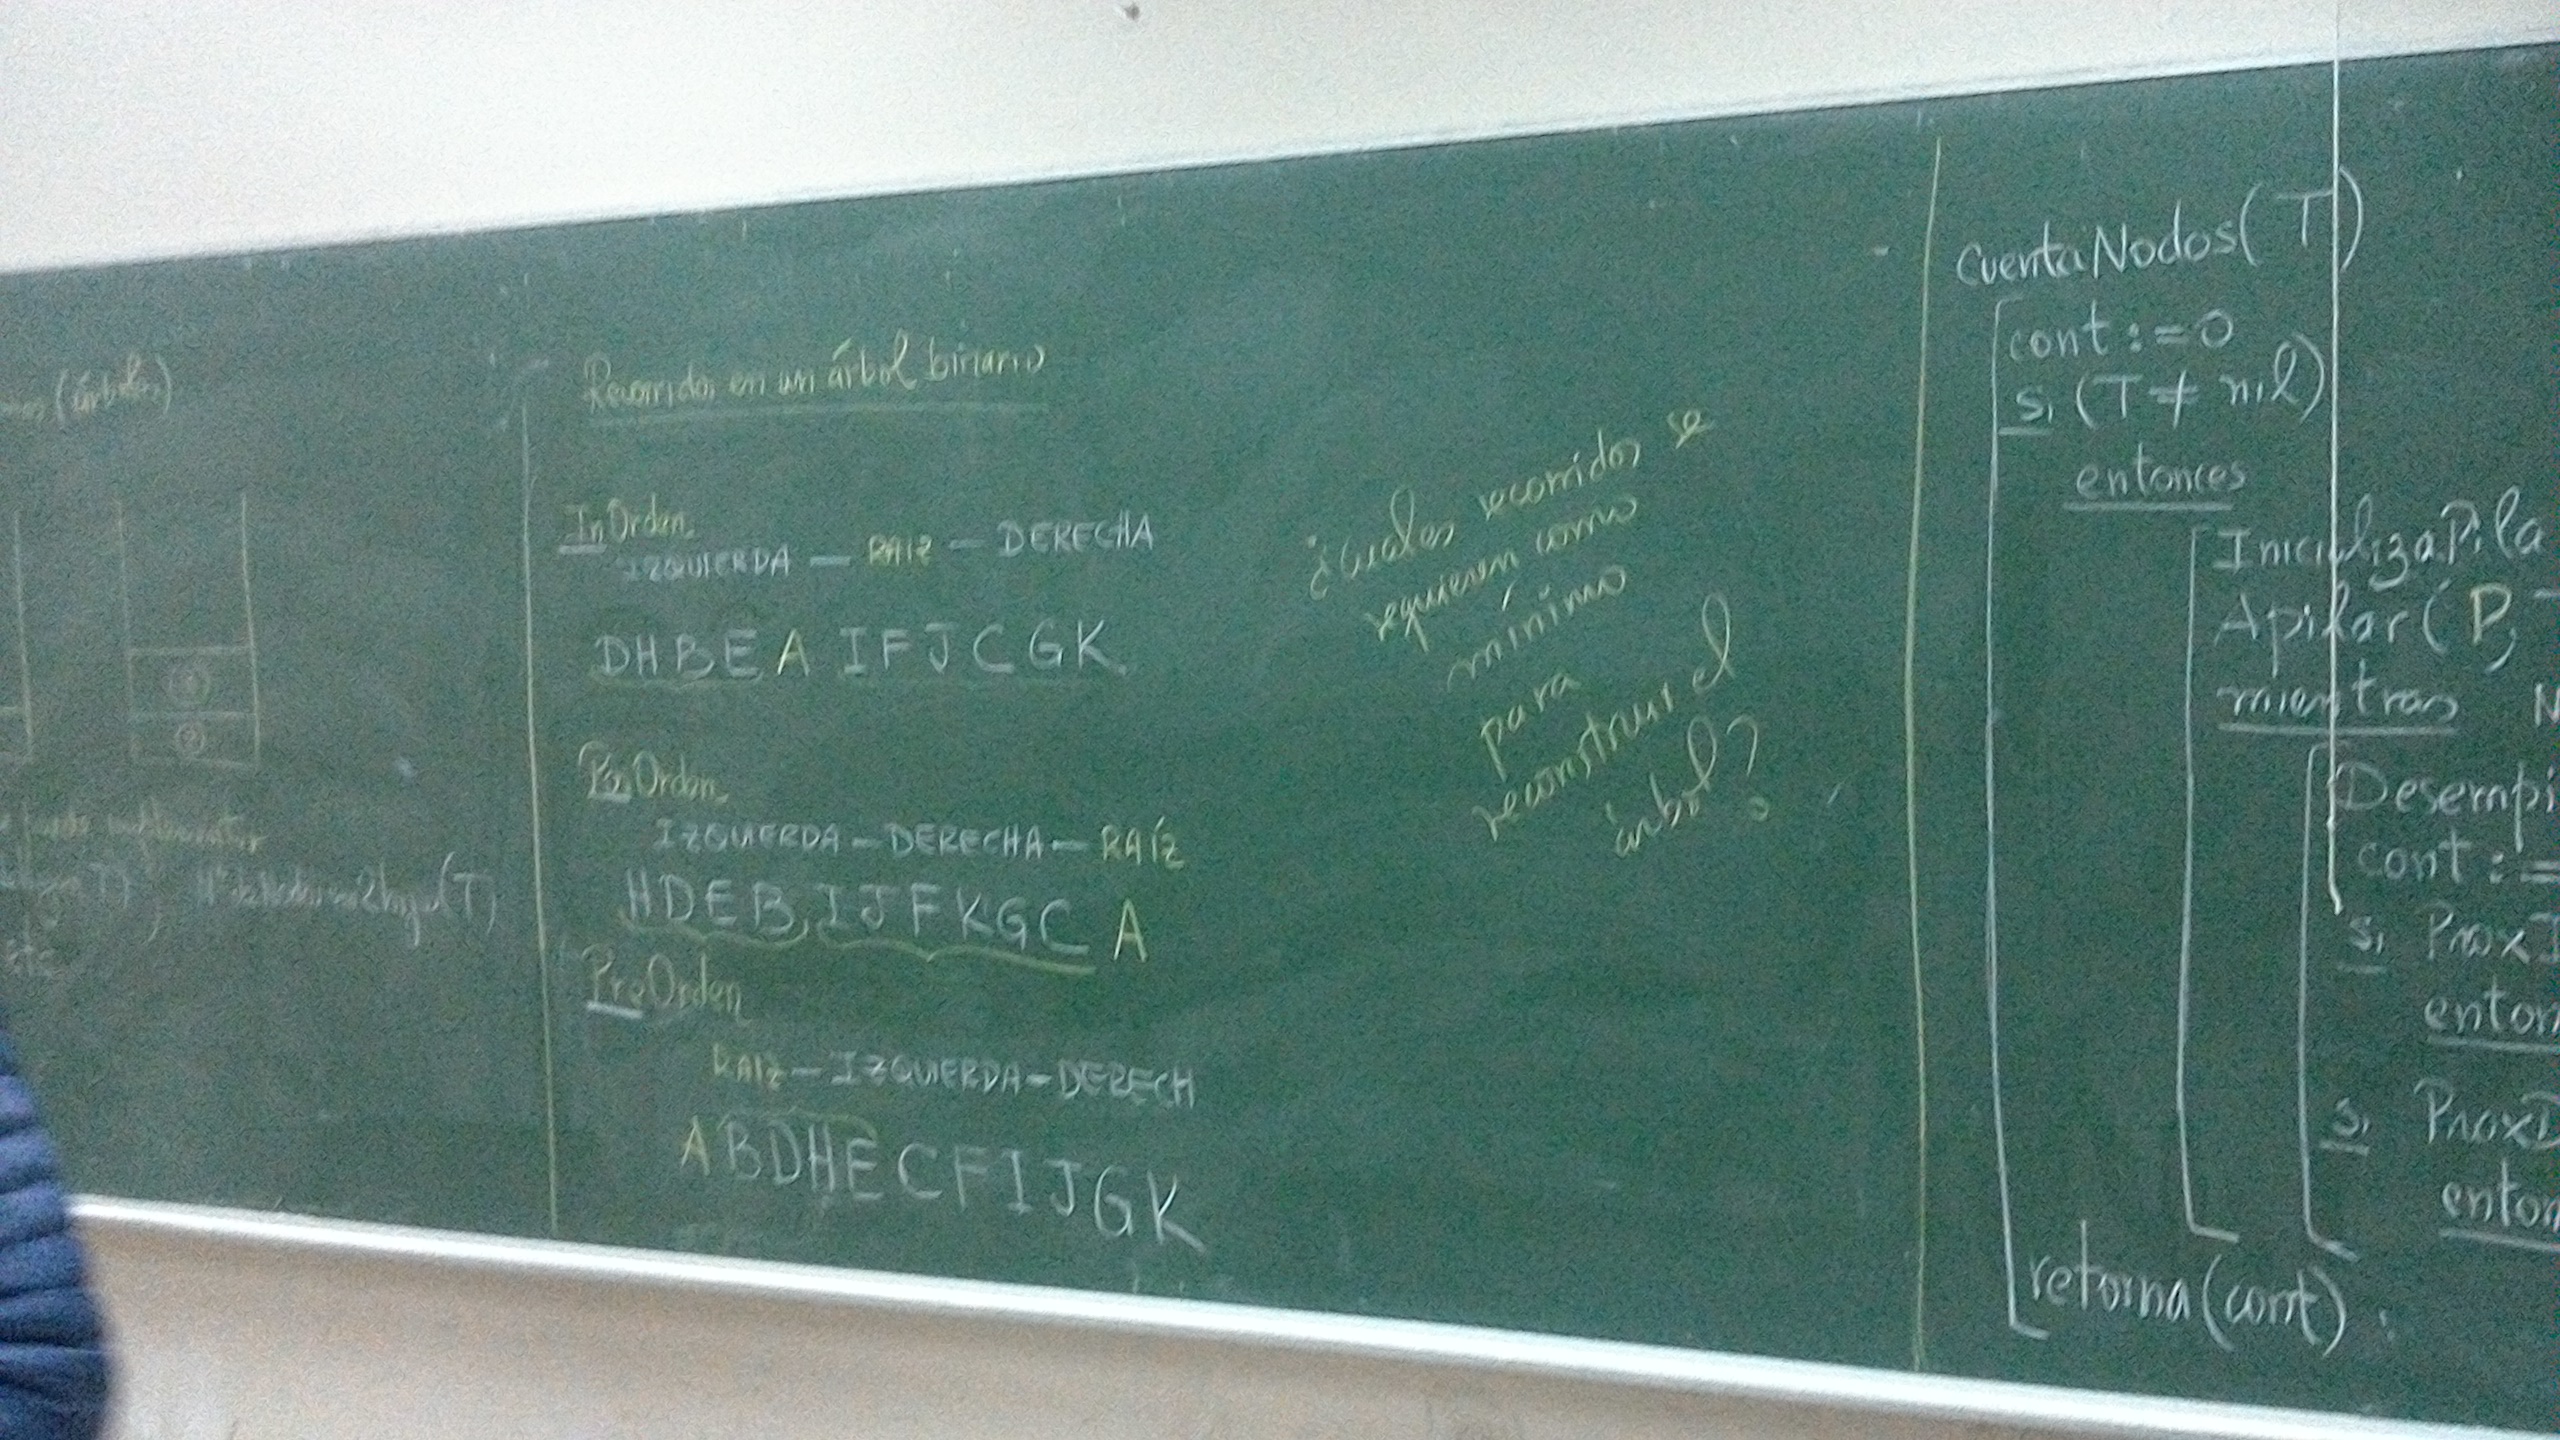 (árboles)
(T)
Recorridos en un árbol binario
InOrden
IZQUIERDA — RAIZ — DERECHA
DHBE A IFJCGK
PosOrden
IZQUIERDA — DERECHA — RAÍZ
HDEB IJFKGC A
PreOrden
RAIZ — IZQUIERDA — DERECH
A BDHE CFIJGK
¿Cuáles recorridos se
requieren como
mínimo
para
reconstruir el
árbol?
CuentaNodos(T)
cont := 0
si (T ≠ nil)
entonces
InicializaPila
Apilar(P,
mientras N
Desempi
cont :=
si ProxI
enton
si ProxD
enton
retorna(cont).